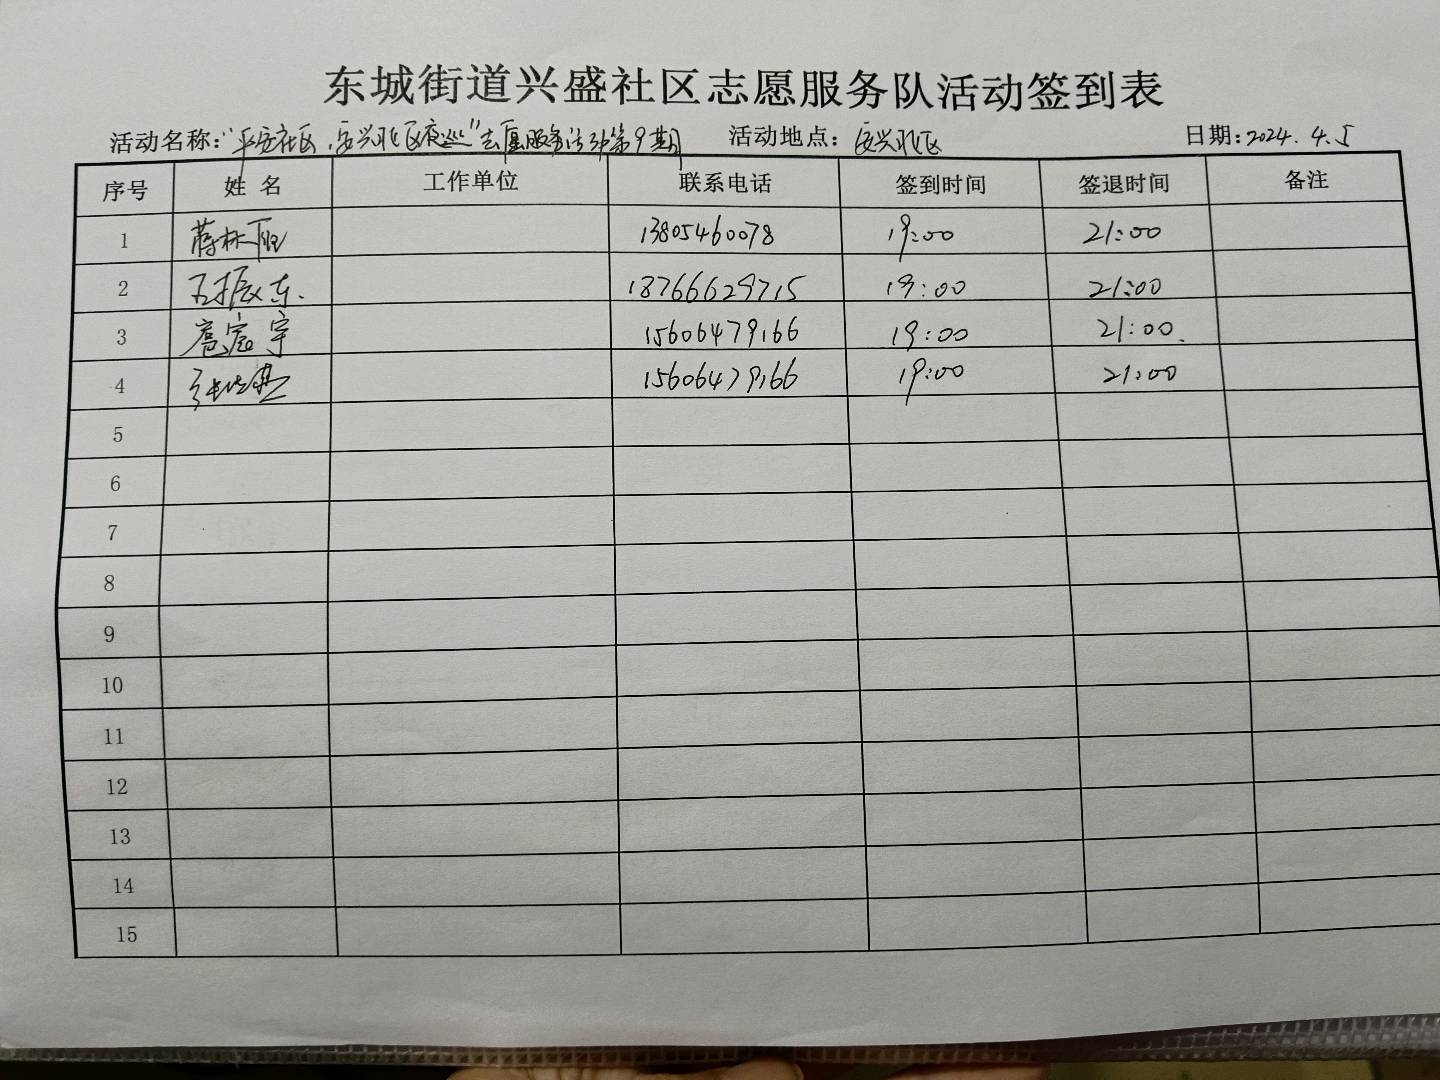 东城街道兴盛社区志愿服务队活动签到表
活动名称:"平安社区,安兴北区夜巡"志愿服务活动第9期 活动地点:安兴北区 日期:2024.4.5
序号 姓名 工作单位 联系电话 签到时间 签退时间 备注
1 13805460078 19:00 21:00
2 18766629715 19:00 21:00
3 15606479166 19:00 21:00
4 15606479166 19:00 21:00
5
6
7
8
9
10
11
12
13
14
15